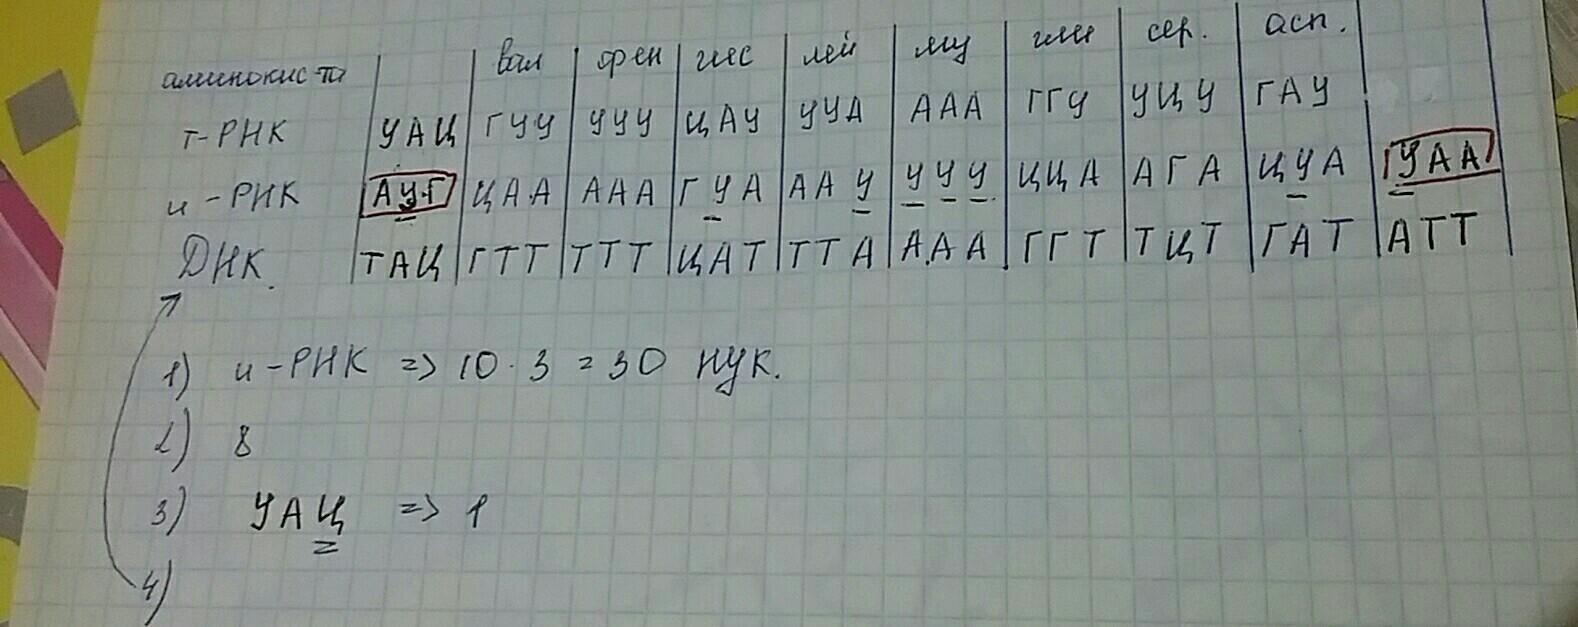 аминокис-та вал фен гис лей лиз гли сер. асп.
т-РНК УАЦ ГУУ УУУ ЦАУ УУА ААА ГГУ УЦУ ГАУ
и-РНК АУГ ЦАА ААА ГУА ААУ УУУ ЦЦА АГА ЦУА УАА
ДНК. ТАЦ ГТТ ТТТ ЦАТ ТТА ААА ГГТ ТЦТ ГАТ АТТ
1) и-РНК => 10 · 3 = 30 нук.
2) 8
3) УАЦ => 1
4)